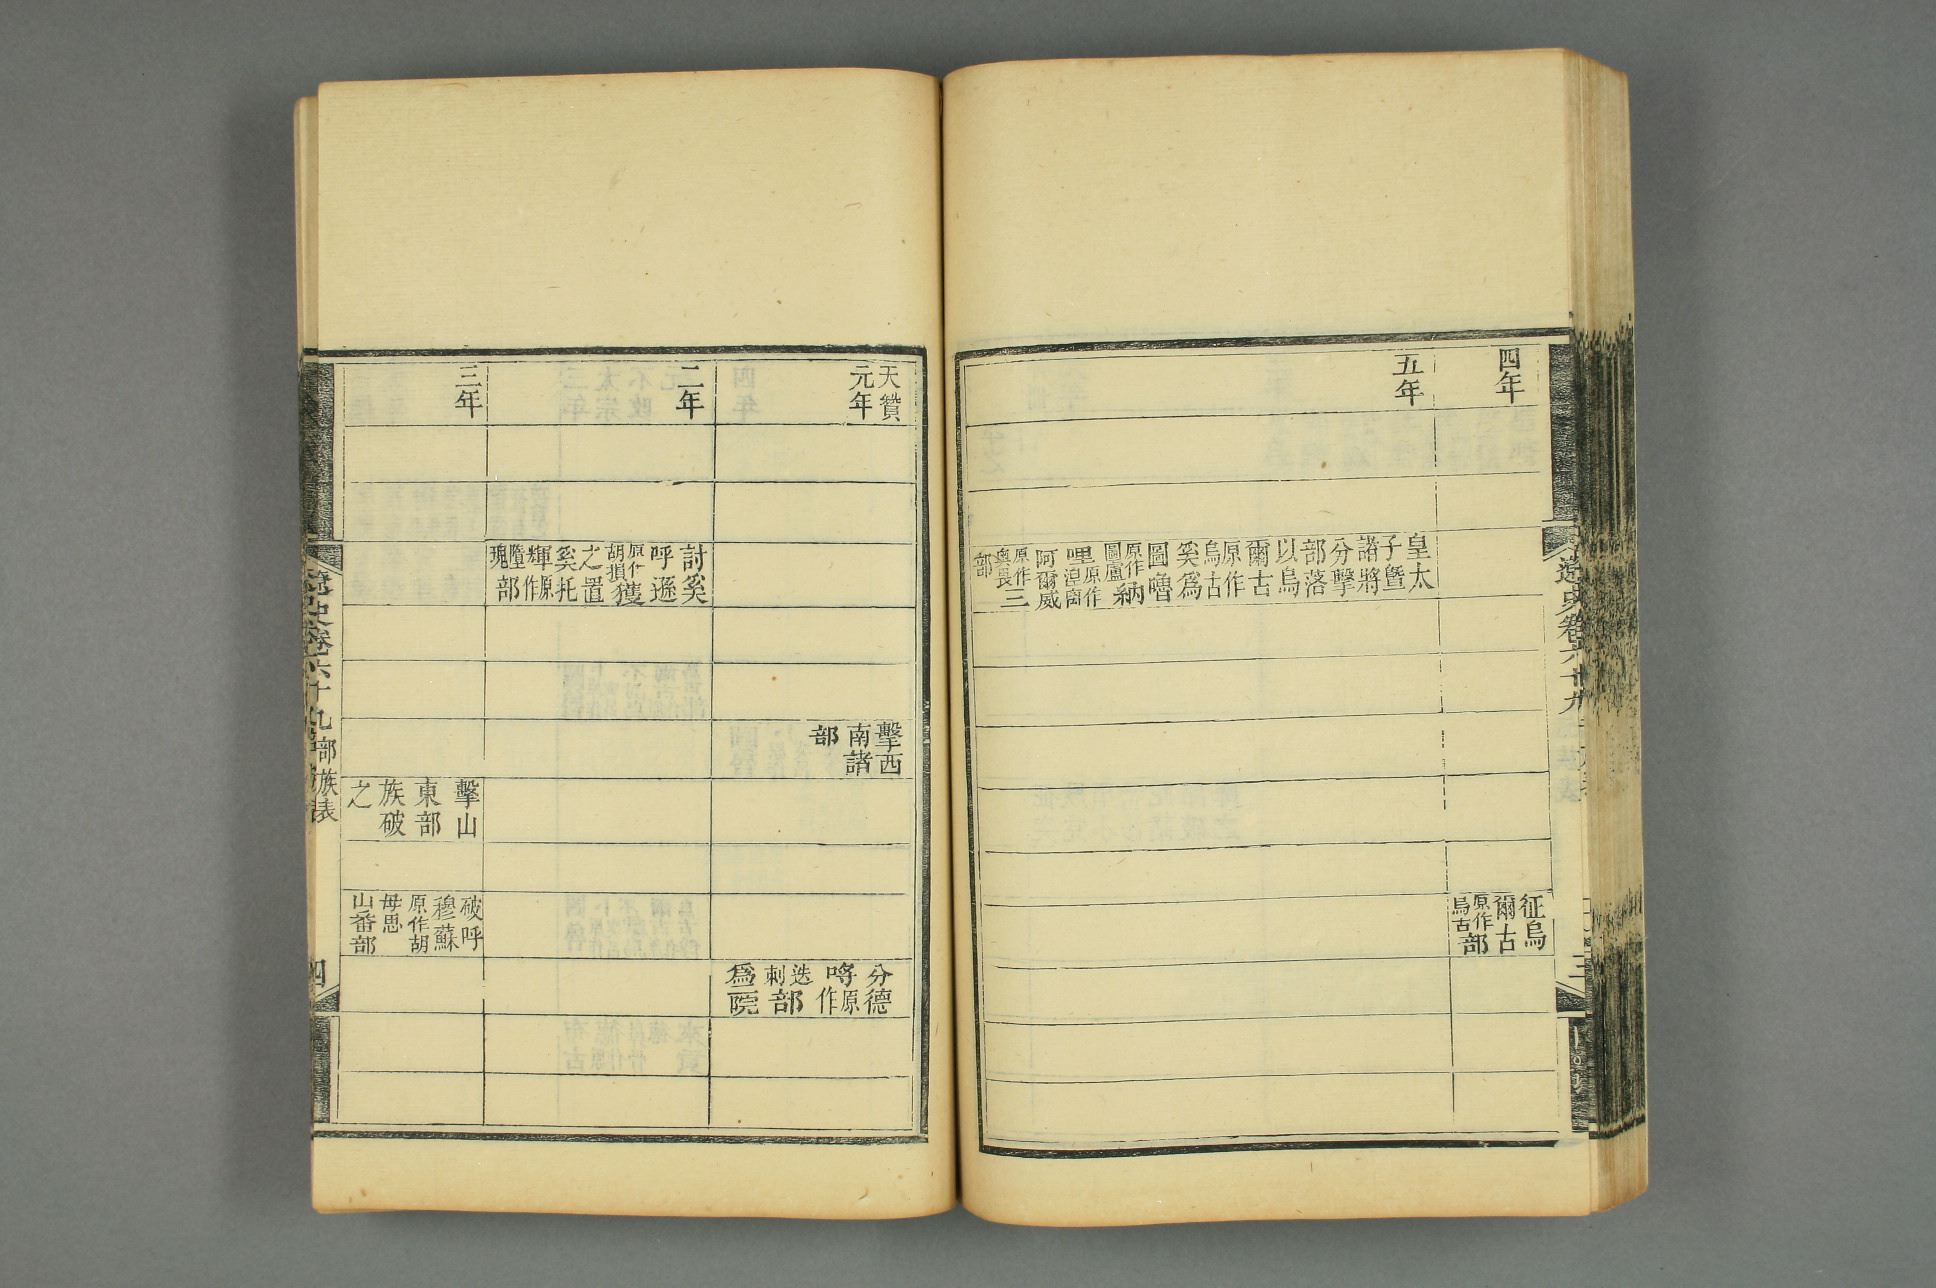 遼史卷六十九
三
四年
征烏
爾古
原作
烏古部
五年
皇太
子曁
諸將
分擊
部落
以烏
爾古
原作
烏古
奚爲
圖嚕
原作
圖盧納
哩原作
涅离
阿爾威
原作
奧畏三
部
天贊
元年
擊西
南諸
部
分德
哷原作
迭剌部
爲院
二年
討奚
呼遜
原作
胡損獲
之置
奚托
輝原作
瑰部
三年
擊山
東部
族破
之
破呼
穆蘇
原作胡
母思
山番部
遼史卷六十九
部族表
四